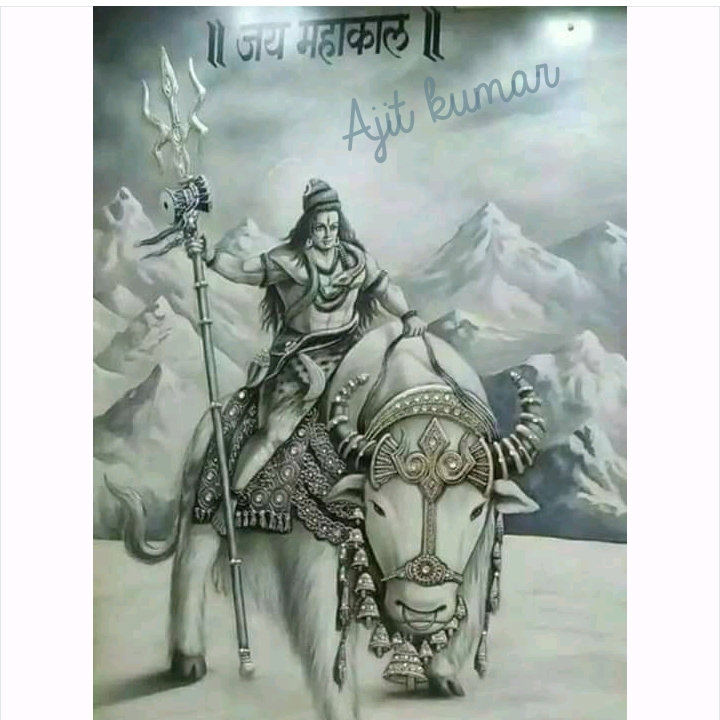 ॥ जय महाकाल ॥
Ajit kumar